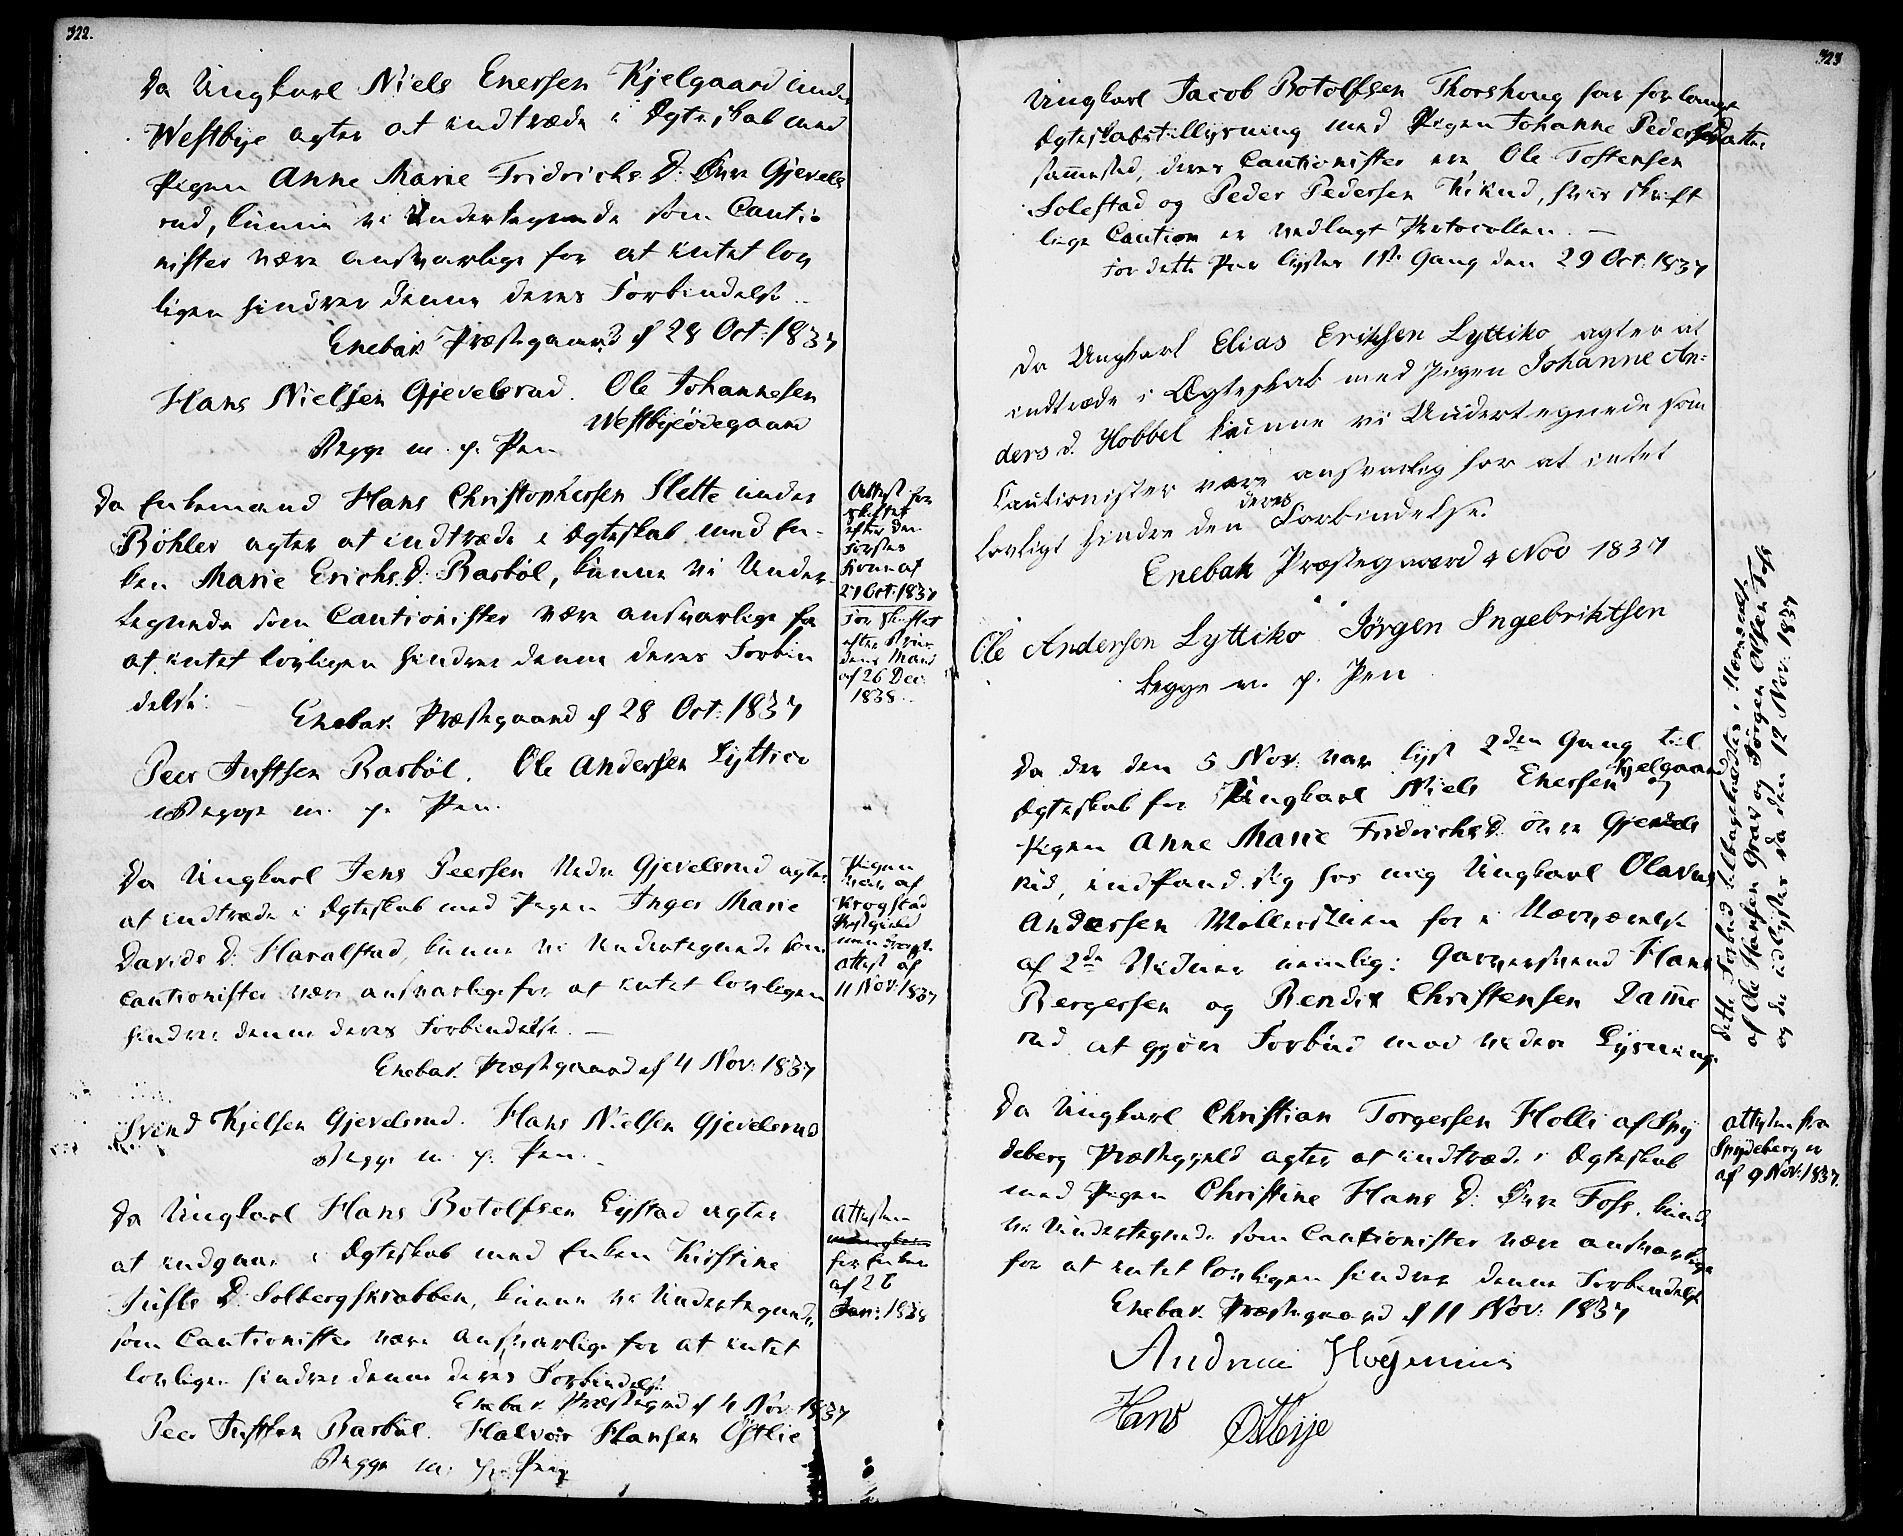 322.
Da Ungkarl Niels Enersen Kjelgaard under
Westbye agter at indtræde i Ægteskab med
Pigen Anne Marie Fridrichs D: Øvre Gjevels
rud, kunne vi Undertegnede som Cautio
nister være ansvarlige for at intet lov
ligen hindrer denne deres Forbindelse.
Enebak Præstegaard d 28 Oct: 1837
Hans Nielsen Gjevelsrud. Ole Johannesen
Westbyeødegaard
Begge m. p. Pen
Da Enkemand Hans Christophersen Slette under
Böhler agter at indtræde i Ægteskab med En-
ken Marie Erichs D: Barböl, kunne vi Under-
tegnede som Cautionister være ansvarlige for
at intet lovligen hindrer denne deres Forbin
delse.
Enebak Præstegaard d 28 Oct: 1837
Peer Justsen Barböl. Ole Andersen Lyttico
Begge m. p. Pen.
Attest for
skiftet
efter den
første
Kone af
27 Oct: 1837
for skiftet
efter Bru-
dens Mand
af 26 Dec:
1838.
Da Ungkarl Jens Peersen Nedre Gjevelsrud agter
at indtræde i Ægteskab med Pigen Inger Marie
Davids D: Haralstad, kunne vi Undertegnede som
Cautionister være ansvarlige for at intet lovligen
hindrer denne deres Forbindelse. —
Enebak Præstegaard d 4 Nov: 1837
Svend Kjelsen Gjevelsrud. Hans Nielsen Gjevelsrud
Begge m. p. Pen.
Pigen
var af
Krogstad
Præstegield
Attest af
11 Nov: 1837
Da Ungkarl Hans Botolfsen Lystad agter
at indgaae i Ægteskab med Enken Kirstine
Justs D: Solbergskrabben, kunne vi Undertegnede
som Cautionister være ansvarlige for at intet
lovligen hindrer denne deres Forbindelse
Enebak Præstegrd d 4 Nov: 1837
Peer Justsen Barböl. Halvor Hansen Östlie
Begge m. p. Pen
Attesten
for Enken
af 26
Jan: 1838
323
Ungkarl Jacob Botolfsen Thorshoug har forlangt
Ægteskabstillysning med Pigen Johanne Pedersdatter
sammested, deres Cautionister ere Ole Tostensen
Solestad og Peder Pedersen Kiind, hvis skrift
lige Caution er vedlagt Protocollen. —
For dette Par lystes 1ste Gang den 29 Oct: 1837
Da Ungkarl Elias Eriksen Lyttiko agter at
indtræde i Ægteskab med Pigen Johanne An-
ders d. Hobbel kunne vi Undertegnede som
Cautionister være ansvarlig for at intet
lovligt hindre den deres Forbindelse.
Enebak Præstegaard 4 Nov 1837
Ole Andersen Lyttiko Jörgen Ingebriktsen
begge m. p. Pen
Da der den 5 Nov: var lyst 2den Gang til
Ægteskab for Ungkarl Niels Enersen Kjelgaard og
Pigen Anne Marie Fridrichs D. Övre Gjevels
rud, indfandt sig hos mig Ungkarl Olavus
Andersen Möllerstuen for i Nærværelse
af 2de Vidner nemlig: Garversvend Hans
Bergersen og Bendix Christensen Damme
rud at gjøre Forbud mod videre Lysning.
dette Forbud tilbagekaldtes i Nærværelse
af Ole Hansen Grav og Jörgen Olsen Foss
og der udlystes da den 12 Nov: 1837
Da Ungkarl Christian Torgersen Holli af Spy
deberg Præstegjeld agter at indtræde i Ægteskab
med Pigen Christine Hans D: Övre Foss, kunne
vi Undertegnede som Cautionister være ansvarlige
for at intet lovligen hindrer denne Forbindelse
Enebak Præstegaard d 11 Nov: 1837
Hans Østbye
Attesten fra
Spydeberg er
af 9 Nov: 1837.